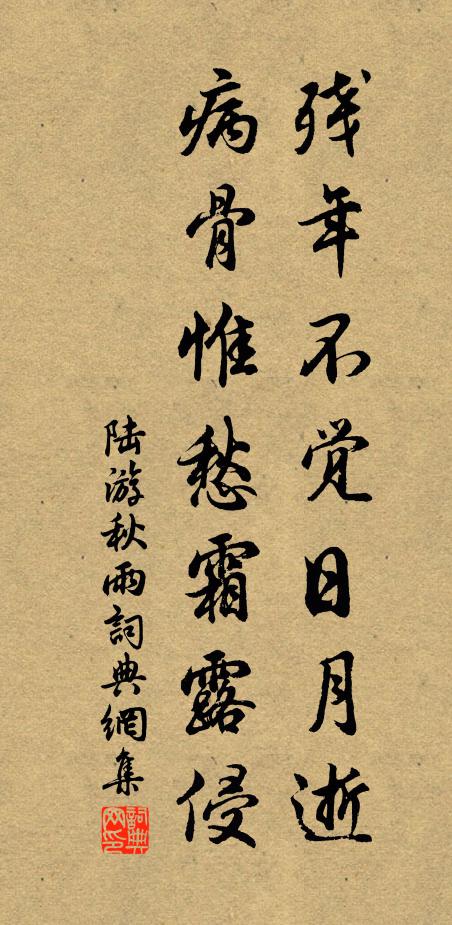 残年不觉日月逝
病骨惟愁霜露侵
陆游秋雨詞典網集
詞典网印